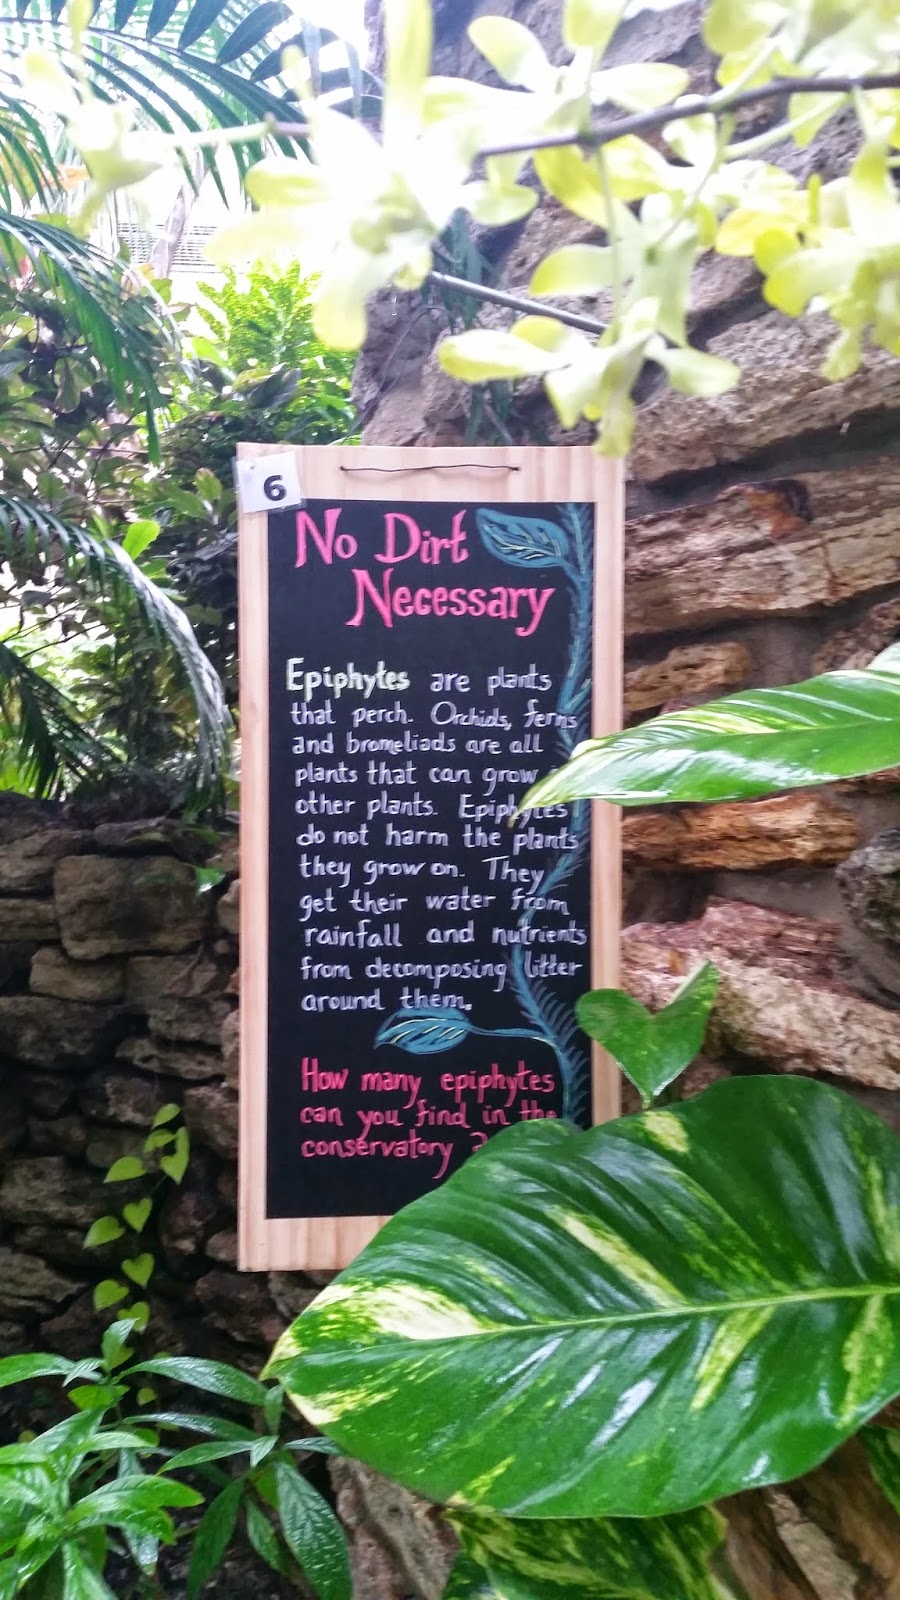 6
No Dirt
Necessary
Epiphytes are plants
that perch. Orchids, ferns
and bromeliads are all
plants that can grow
other plants. Epiphytes
do not harm the plants
they grow on. They
get their water from
rainfall and nutrients
from decomposing litter
around them.
How many epiphytes
can you find in the
conservatory ?